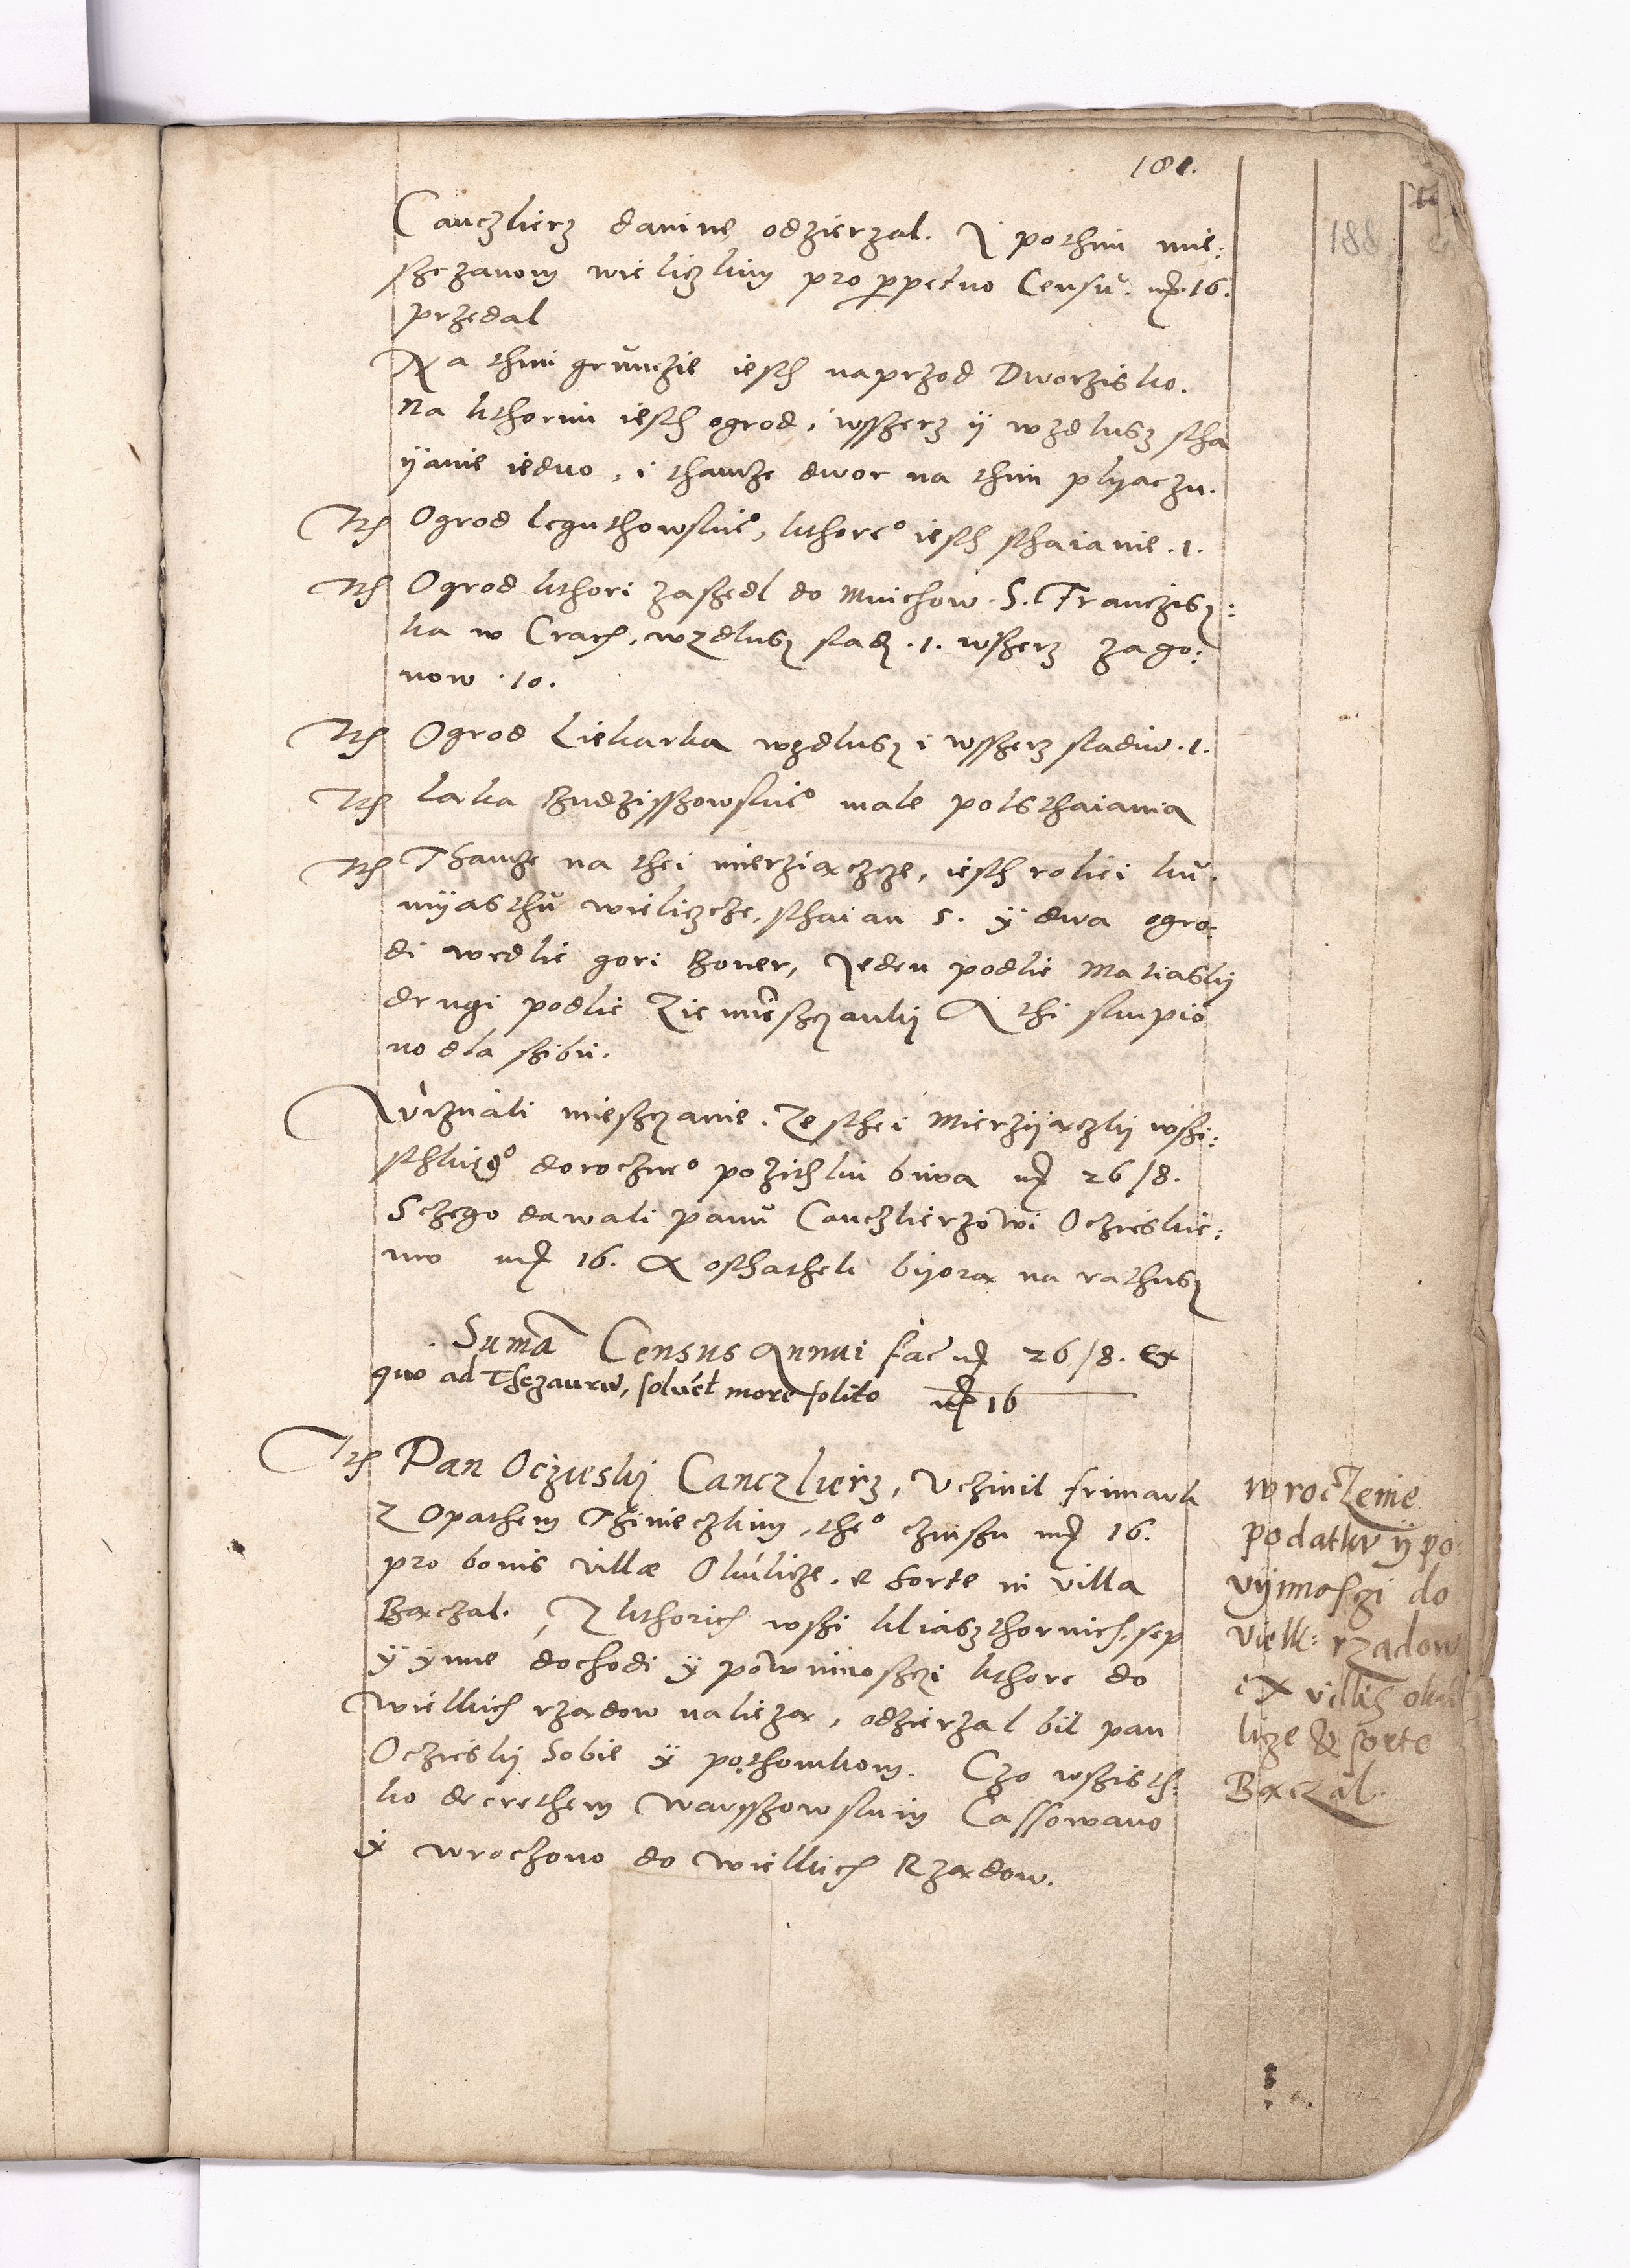 181.
188
Canczlierz danine odzierzal. I pothim mie:
szczanom wieliczkim pro perpetuo Censu. mҏ. 16.
przedal
Na thim grunczie iesth naprzod Dworzisko.
Na kthorim iesth ogrod, wsszerz y wzdlusz stha
yanie iedno, i thamze dwor na thim plyaczu.
Ith Ogrod leguthowskie°, kthore° iesth sthaianie .1.
Ith Ogrod kthori zaszedl do Mnichow. S. Franczisz:
ka w Crach, wzdlusz stad. .1. wszerz zago:
now .10.
Ith Ogrod Liekarka wzdlusz i wsszerz stadiu .1.
Ith laka Budzisszowskie° male polsthaiania
Ith Thamze na thei mierziaczcze, iesth roliei ku
myasthu wieliczcze, sthaian 5. y dwa ogro:
di wedlie gori Boner, Jeden podlie Matiaski
drugi podlie Ziemieszczanki A thi skupio
no dla szibu.
Vznali mieszczanie. Ze sthei Mierzyaczki wszi:
sthkie° doroczne° pozithku biwa mҏ 26/8.
Sczego dawali panu Canczlierzowi Oczieskie:
mu mҏ 16. A osthathek biyora na rathusz
Suma Census Annui fac mҏ 26/8. Ex
quo ad Thezauru, solvet more solito mҏ 16
Ith Pan Oczieski Canczlierz, Vczinil frimark
z Opathem Thinieczkim, the° czinszu mҏ 16.
pro bonis villæ Okulicze, e sorte in villa
Baczal. Z kthorich wszi kliasthornich, sep
y ynne dochodi y powinnosczi kthore do
wielkich rzadow nalieza, odzierzal bil pan
Oczieski Sobie y pothomkom. Czo wszisth:
ko decrethem Warsszowskim Cassowano
y wroczono do wielkich Rzadow.
wroczenie
podatku y po:
vynnosczi do
vielk: rzadow
ex villis oku
licze & sorte
Baczal.